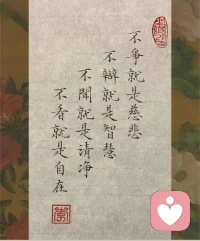 不爭就是慈悲
不辯就是智慧
不聞就是清淨
不看就是自在